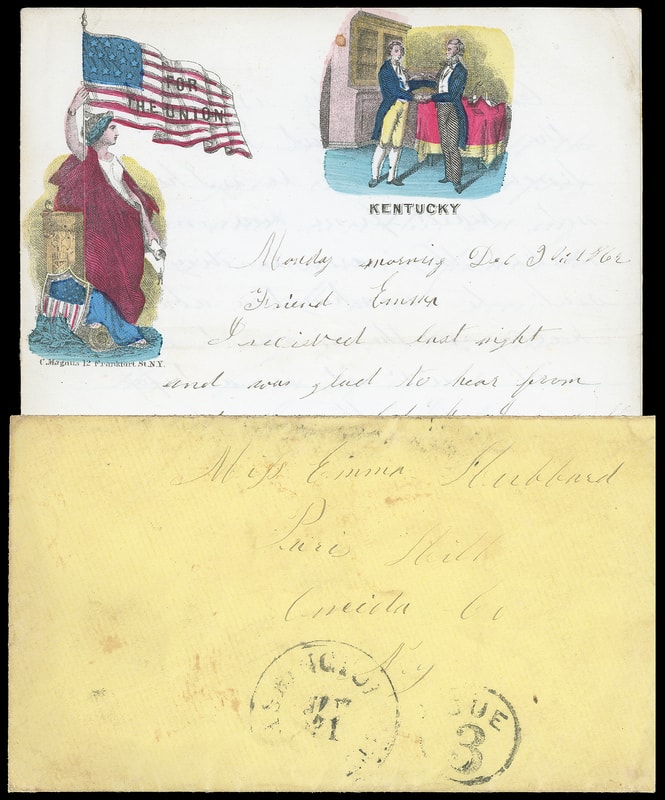 FOR
THE UNION
KENTUCKY
C. Magnus 12 Frankfort St. N.Y.
Monday morning Dec 1862
Friend Emma
I recieved last night
and was glad to hear from
Miss Emma Hubbard
Paris Hill
Oneida Co
NY
WASHINGTON
21
DUE
3